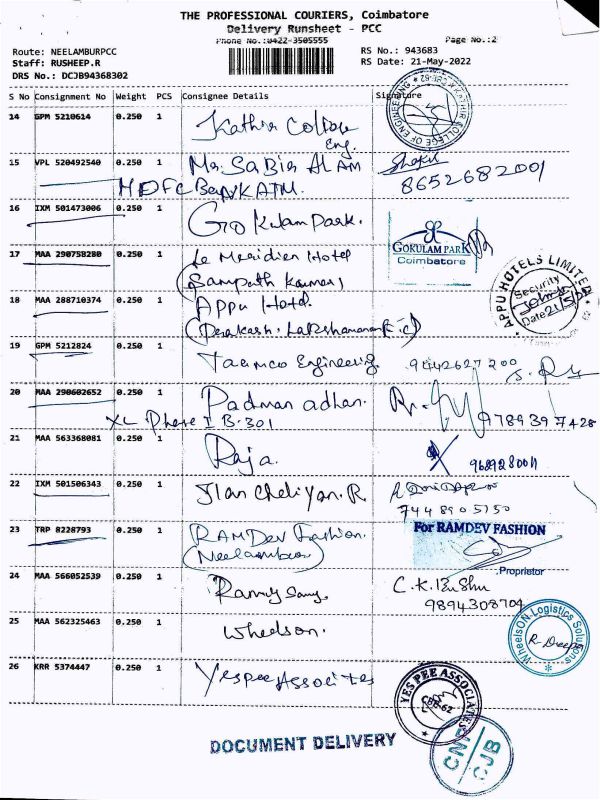 THE PROFESSIONAL COURIERS, Coimbatore
Delivery Runsheet - PCC
Phone No.:0422-3505555
Page No.:2
Route: NEELAMBURPCC
RS No.: 943683
Staff: RUSHEEP.R
RS Date: 21-May-2022
DRS No.: DCJB94368302
S No Consignment No Weight PCS Consignee Details Signature
14 GPM 5210614 0.250 1 Kathir College
Eng.
KATHIR COLLEGE OF ENGINEERING
15 VPL 520492540 0.250 1 Mr. SaBir ALAM
HDFC Bank ATM. 8652682001
16 IXM 501473006 0.250 1 Gokulam Park.
GOKULAM PARK
Coimbatore
17 MAA 290758280 0.250 1 Le Meridien Hotel
(Sampath Kumar)
APPU HOTELS LIMITED
Security
Date 21/5/22
18 MAA 288710374 0.250 1 Appu Hotel.
(Prakash. Lakshmanan
19 GPM 5212824 0.250 1 Taamco Engineering. 9442627200
20 MAA 290602652 0.250 1 Padmanadhan.
XL Phase I B-301 9789397428
21 MAA 563368081 0.250 1 Raja.
22 IXM 501506343 0.250 1 Ilan Cheliyan. R.
7448905150
23 TRP 8228793 0.250 1 RAMDev Fashion.
(Neelambur)
For RAMDEV FASHION
Proprietor
24 MAA 566052539 0.250 1 Ramysamy C.K.
9894308704
25 MAA 562325463 0.250 1 Wheelson.
WheelsON Logistics Solutions
R. Deepa
26 KRR 5374447 0.250 1 Yespee Assocites
YES PEE ASSOCIATES
CBE-62
DOCUMENT DELIVERY
CNP
CJB